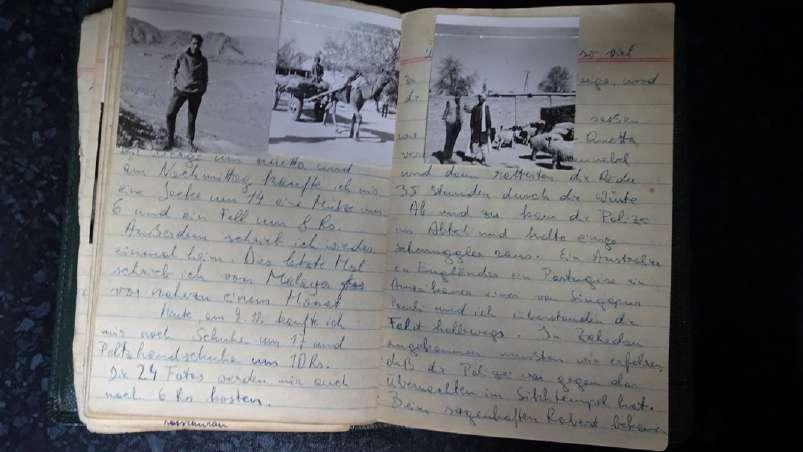 Berge um Quetta und
am Nachmittag kaufte ich mir
eine Jacke um 14 eine Mütze um
6 und ein Fell um 8 Rs.
Außerdem schrieb ich wieder
einmal heim. Das letzte Mal
schrieb ich von Malaya
vor nahezu einem Monat
Heute, am 9. 11. kaufte ich
mir noch Schuhe um 17 und
Pelzhandschuhe um 10 Rs.
Die 24 Fotos werden mir auch
noch 6 Rs kosten.
Restaurant
so viel
zu
wir
Quetta
und dann ratterten die Räder
35 Stunden durch die Wüste
Ab und zu kam die Polizei
ins Abteil und holte einige
Schmuggler raus. Ein Australier
ein Engländer ein Portugiese ein
Amerikaner einer von Singapur
und ich überstanden die
Fahrt halbwegs. In Zahedan
angekommen mussten wir erfahren,
daß die Polizei was gegen das
übernachten im Sikhtempel hat.
Beim sagenhaften Robert bekamen